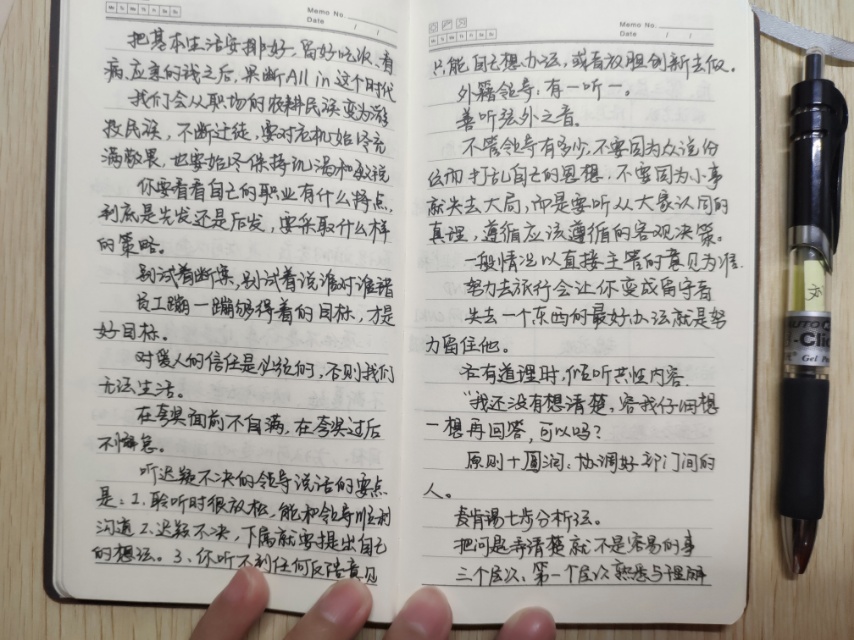 Memo No.
Date / /
把基本生活安排好,留好吃饭、看
病、应急的钱之后,果断All in 这个时代
我们会从职场的农耕民族变为游
牧民族,不断迁徙,要对危机始终充
满敬畏,也要始终保持饥渴和
你要看看自己的职业有什么特点,
到底是先发还是后发,要采取什么样
的策略。
别试着断案,别试着说谁对谁错
员工蹦一蹦够得着的目标,才是
好目标。
对爱人的信任是必须的,否则我们
无法生活。
在夸奖面前不自满,在夸奖过后
不懈怠。
听迟疑不决的领导说话的要点
是:1、聆听时很放松,能和领导顺利
沟通 2、迟疑不决,下属就要提出自己
的想法。3、你听不到任何反馈意见
Memo No.
Date / /
只能自己想办法,或者放胆创新去做。
外籍领导:有一听一。
善听弦外之音。
不管领导有多少,不要因为众说纷
纭而打乱自己的思想,不要因为小事
就失去大局,而是要听从大家认同的
真理,遵循应该遵循的客观决策。
一般情况以直接主管的意见为准.
努力去旅行会让你变成留守者
失去一个东西的最好办法就是努
力留住他。
各有道理时,倾听共性内容.
“我还没有想清楚,容我仔细想
一想再回答,可以吗?
原则+圆润:协调好部门间的
人。
麦肯锡七步分析法。
把问题弄清楚就不是容易的事
三个层次、第一个层次熟悉与理解
AUTO C
-Clic
Gel Pe